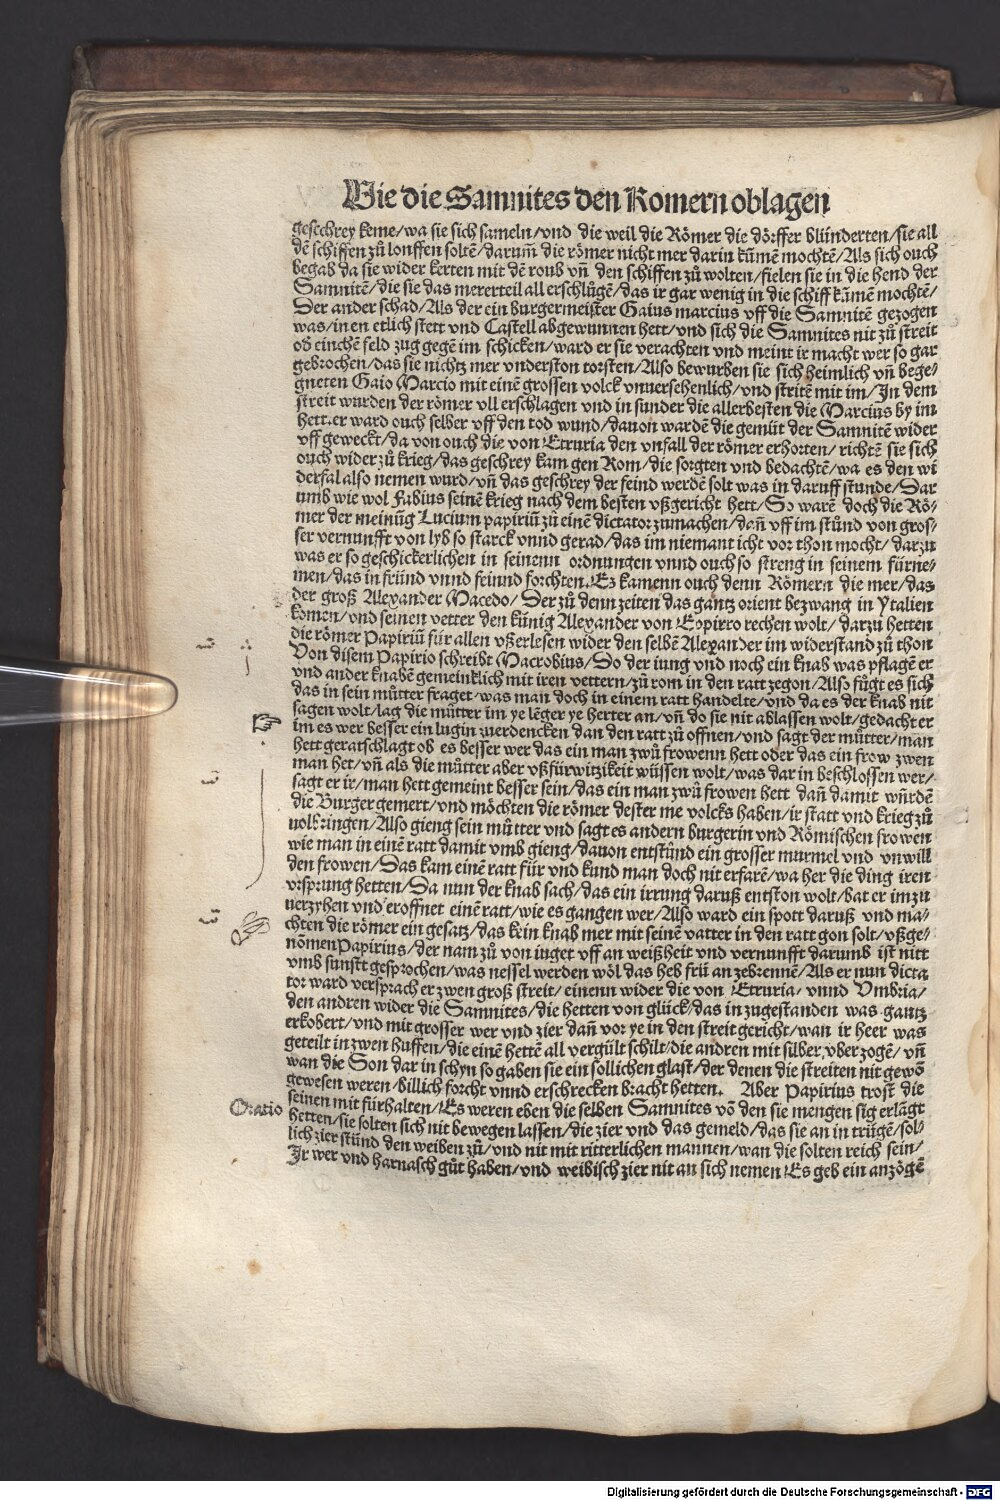 Wie die Samnites den Romern oblagen
geschrey keme/wa sie sich sameln/vnd die weil die Römer die dörffer blünderten/sie all
dē schiffen zů louffen soltē/darum̄ die römer nicht mer darin kūmē mochtē/Als sich ouch
begab da sie wider kerten mit dē roub vn̄ den schiffen zů wolten/fielen sie in die hend der
Samnitē/die sie das mererteil all erschlůgē/das ir gar wenig in die schiff kūmē mochtē/
Der ander schad/Als der ein burgermeister Gaius marcius vff die Samnitē gezogen
was/inen etlich stett vnd Castell abgewunnen hett/vnd sich die Samnites nit zů streit
od einchē feld zug gegē im schicken/ward er sie verachten vnd meint ir macht wer so gar
gebrochen/das sie nichtz mer vnderston torsten/Also bewurben sie sich heimlich vn̄ bege-
gneten Gaio Marcio mit einē grossen volck vnuersehenlich/vnd stritē mit im/In dem
streit wurden der römer vll erschlagen vnd in sunder die allerbesten die Marcius by im
hett.er ward ouch selber vff den tod wund/dauon wardē die gemüt der Samnitē wider
vff geweckt/da von ouch die von Etruria den vnfall der römer erhorten/richtē sie sich
ouch wider zů krieg/das geschrey kam gen Rom/die sorgten vnd bedachtē/wa es den wi
derfal also nemen wurd/vn̄ das geschrey der feind werdē solt was in daruff stunde/Dar
umb wie wol Fabius seinē krieg nach dem besten vßgericht hett/So warē doch die Rö-
mer der meinūg Lucium papiriū zů einē dictator zumachen/dan̄ vff im stůnd von gros-
ser vernunfft von lyb so starck vnnd gerad/das im niemant icht vor thon mocht/darzu
was er so geschickerlichen in seinenn ordnungen vnnd ouch so streng in seinem fürne-
men/das in fründ vnnd feinnd forchten.Ez kamenn ouch denn Römern die mer/das
der groß Alexander Macedo/Der zů denn zeiten das gantz orient bezwang in Ytalien
komen/vnd seinen vetter den künig Alexander von Eopirro rechen wolt/darzu hetten
die römer Papiriū für allen vßerlesen wider den selbē Alexander im widerstand zů thon
Von disem Papirio schreibt Macrobius/So der iung vnd noch ein knab was pflagē er
vnd ander knabē gemeinklich mit iren vettern/zů rom in den ratt zegon/Also fůgt es sich
das in sein můtter fraget was man doch in einem ratt handelte/vnd da es der knab nit
sagen wolt/lag die můtter im ye lēger ye herter an/vn̄ do sie nit ablassen wolt/gedacht er
im es wer besser ein lugin zuerdencken dan den ratt zů offnen/vnd sagt der můtter/man
hett geratschlagt ob es besser wer das ein man zwů frowenn hett oder das ein frow zwen
man het/vn̄ als die můtter aber vß fürwitzikeit wüssen wolt/was dar in beschlossen wer/
sagt er ir/man hett gemeint besser sein/das ein man zwů frowen hett dan̄ damit wurdē
die Burger gemert/vnd möchten die römer dester me volcks haben/ir statt vnd krieg zů
uolbringen/Also gieng sein můtter vnd sagt es andern burgerin vnd Römischen frowen
wie man in einē ratt damit vmb gieng/dauon entstůnd ein grosser murmel vnd vnwill
den frowen/Das kam einē ratt für vnd kund man doch nit erfarē/wa her die ding iren
vrsprung hetten/Da nun der knab sach/das ein irrung daruß entston wolt/bat er im zu
uerzyhen vnd eroffnet einē ratt/wie es gangen wer/Also ward ein spott daruß vnd ma-
chten die römer ein gesatz/das kein knab mer mit seinē vatter in den ratt gon solt/vßge-
nōmen Papirius/der nam zů von iuget vff an weißheit vnd vernunfft darumb ist nitt
vmb sunstt gesprochen/was nessel werden wöl das heb frü an zebrennē/Als er nun dicta
tor ward versprach er zwen groß streit/einenn wider die von Etruria/vnnd Vmbria/
den andren wider die Samnites/die hetten von glück/das in zugestanden was gantz
erkobert/vnd mit grosser wer vnd zier dan̄ vor ye in den streit gericht/wan ir heer was
geteilt in zwen huffen/die einē hettē all vergült schilt/die andren mit silber vberzogē/vn̄
wan die Son dar in schyn so gaben sie ein sollichen glast/der denen die streiten nit gewō
gewesen weren/billich forcht vnnd erschrecken bracht hetten. Aber Papirius trost die
Oratio
seinen mit fürhalten/Es weren eben die selben Samnites vō den sie mengen sig erlāgt
hetten/sie solten sich nit bewegen lassen/die zier vnd das gemeld/das sie an in trügē/sol-
lich zier stůnd den weiben zů/vnd nit mit ritterlichen mannen/wan die solten reich sein/
Ir wer vnd harnasch gůt haben/vnd weibisch zier nit an sich nemen/Es geb ein anzögē
Digitalisierung gefördert durch die Deutsche Forschungsgemeinschaft - DFG